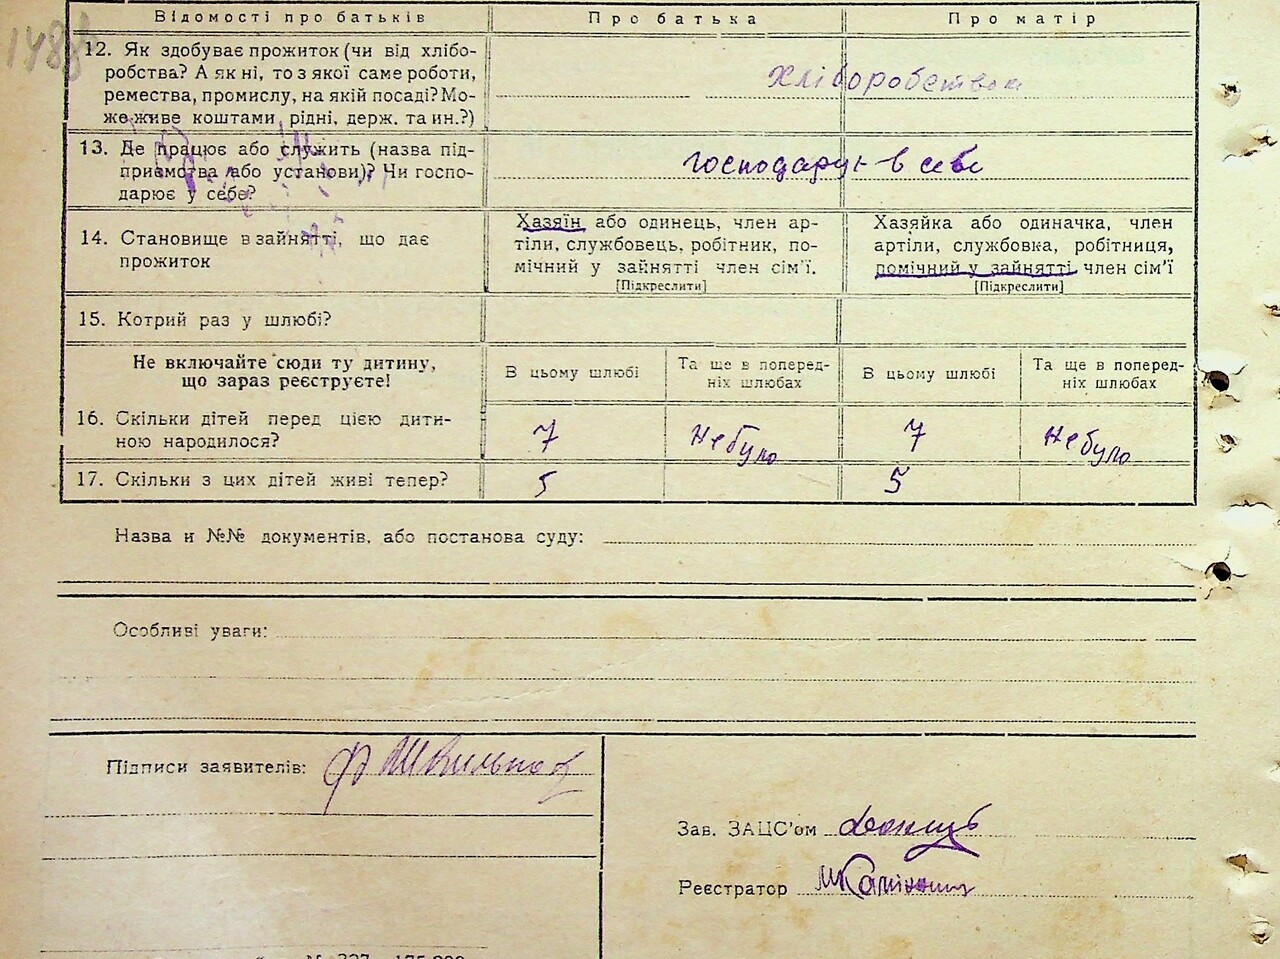 Відомості про батьків Про батька Про матір
12. Як здобуває прожиток (чи від хлібо-
робства? А як ні, то з якої саме роботи,
ремества, промислу, на якій посаді? Мо-
же живе коштами рідні, держ. та ин.?)
хліборобством
13. Де працює або служить (назва під-
приємства або установи)? Чи госпо-
дарює у себе?
господарує в себе
14. Становище в зайнятті, що дає
прожиток
Хазяїн або одинець, член ар-
тіли, службовець, робітник, по-
мічний у зайнятті член сім'ї.
[Підкреслити]
Хазяйка або одиначка, член
артіли, службовка, робітниця,
помічний у зайнятті член сім'ї
[Підкреслити]
15. Котрий раз у шлюбі?
Не включайте сюди ту дитину,
що зараз реєструєте!
В цьому шлюбі
Та ще в поперед-
ніх шлюбах
В цьому шлюбі
Та ще в поперед-
ніх шлюбах
16. Скільки дітей перед цією дити-
ною народилося?
7 не було 7 не було
17. Скільки з цих дітей живі тепер? 5 5
Назва и №№ документів, або постанова суду:
Особливі уваги:
Підписи заявителів:
Зав. ЗАЦС'ом
Реєстратор